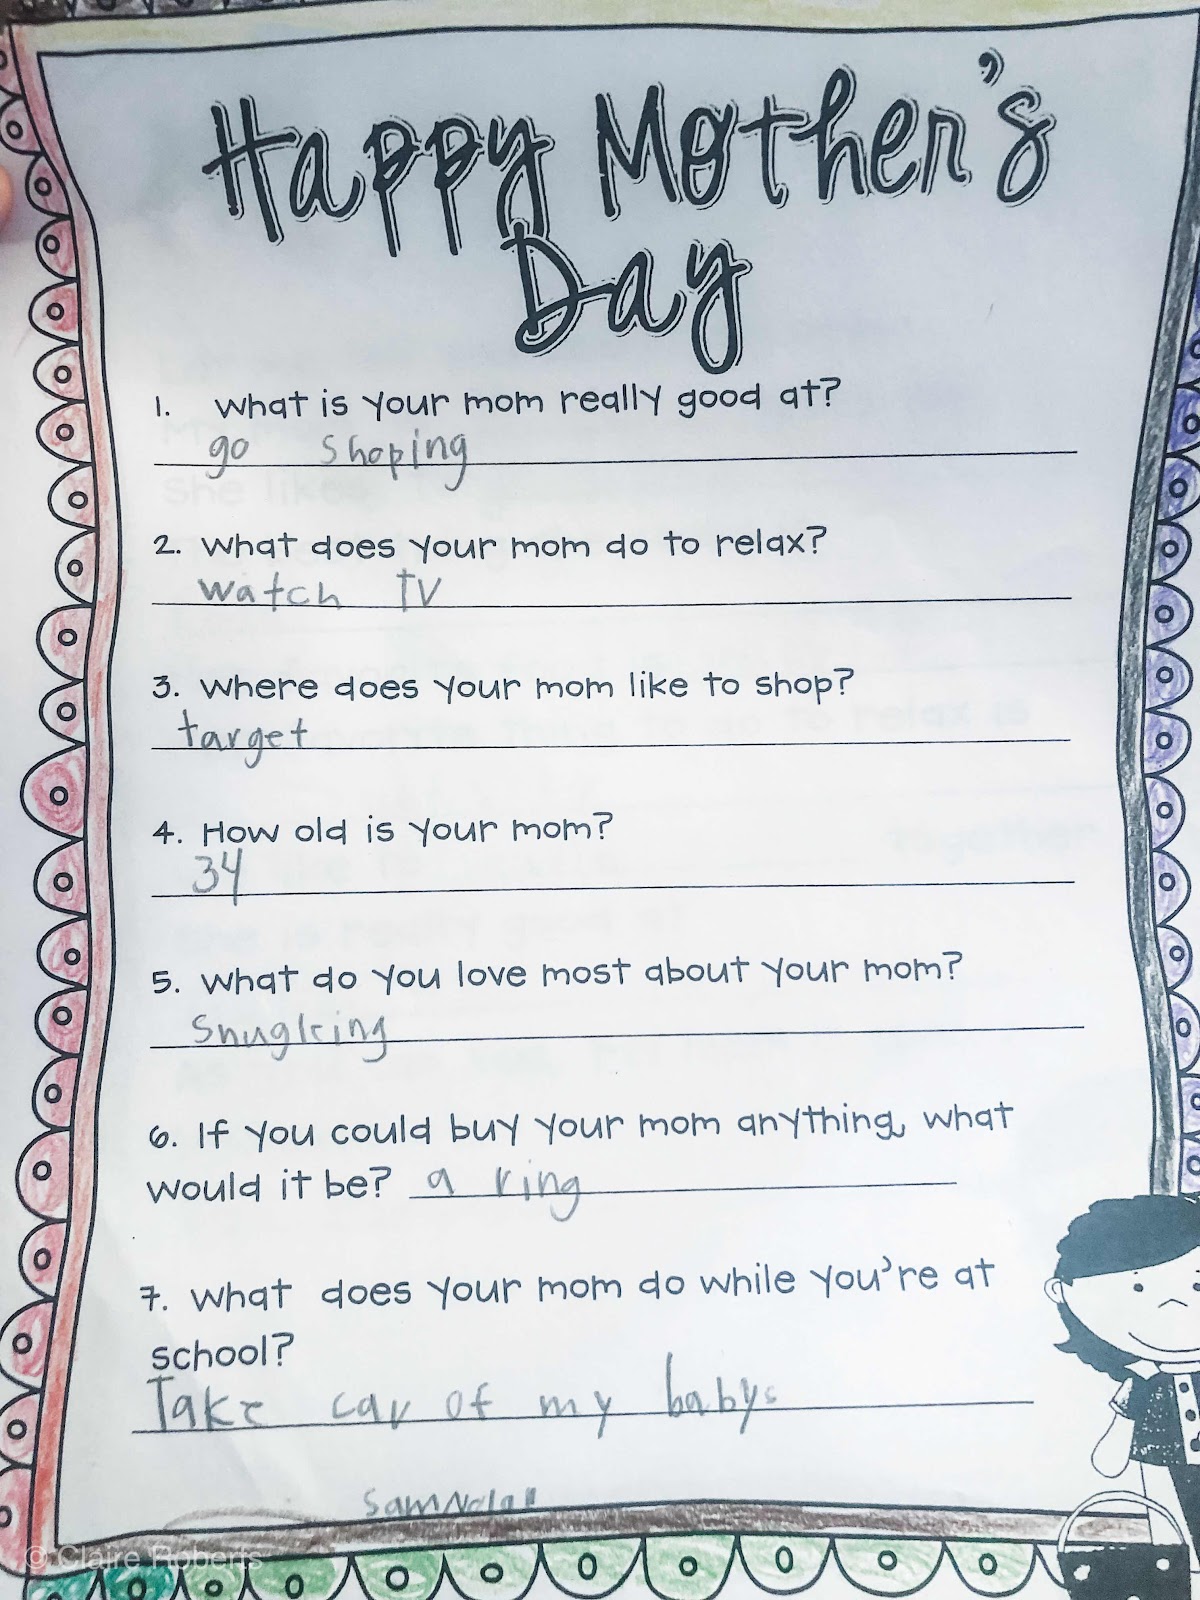 Happy Mother's
Day
1. What is your mom really good at?
go shoping
2. What does your mom do to relax?
watch TV
3. Where does your mom like to shop?
target
4. How old is your mom?
34
5. What do you love most about your mom?
Snuglcing
6. If you could buy your mom anything, what
would it be? a ring
7. What does your mom do while you're at
school?
Take car of my babys
Sam Nolan
© Claire Roberts